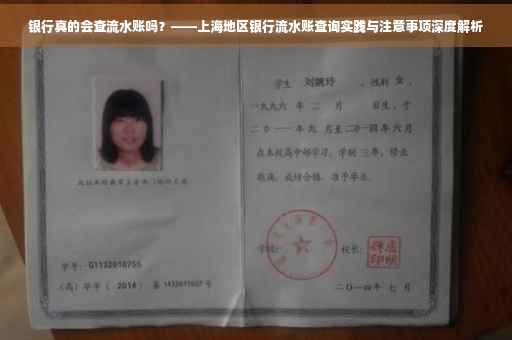 银行真的会查流水账吗？——上海地区银行流水账查询实践与注意事项深度解析
学生 刘婉玲 ，性别 女 ，
一九九六 年 二 月 日生，于
二〇一一年九 月至二〇一四年六月
在本校高中部学习，学制 三年，修业
期满，成绩合格，准予毕业。
学号： G1132010755
（高）毕字（ 2014 ）第 1432011027 号
校长：
二〇一四年 七 月